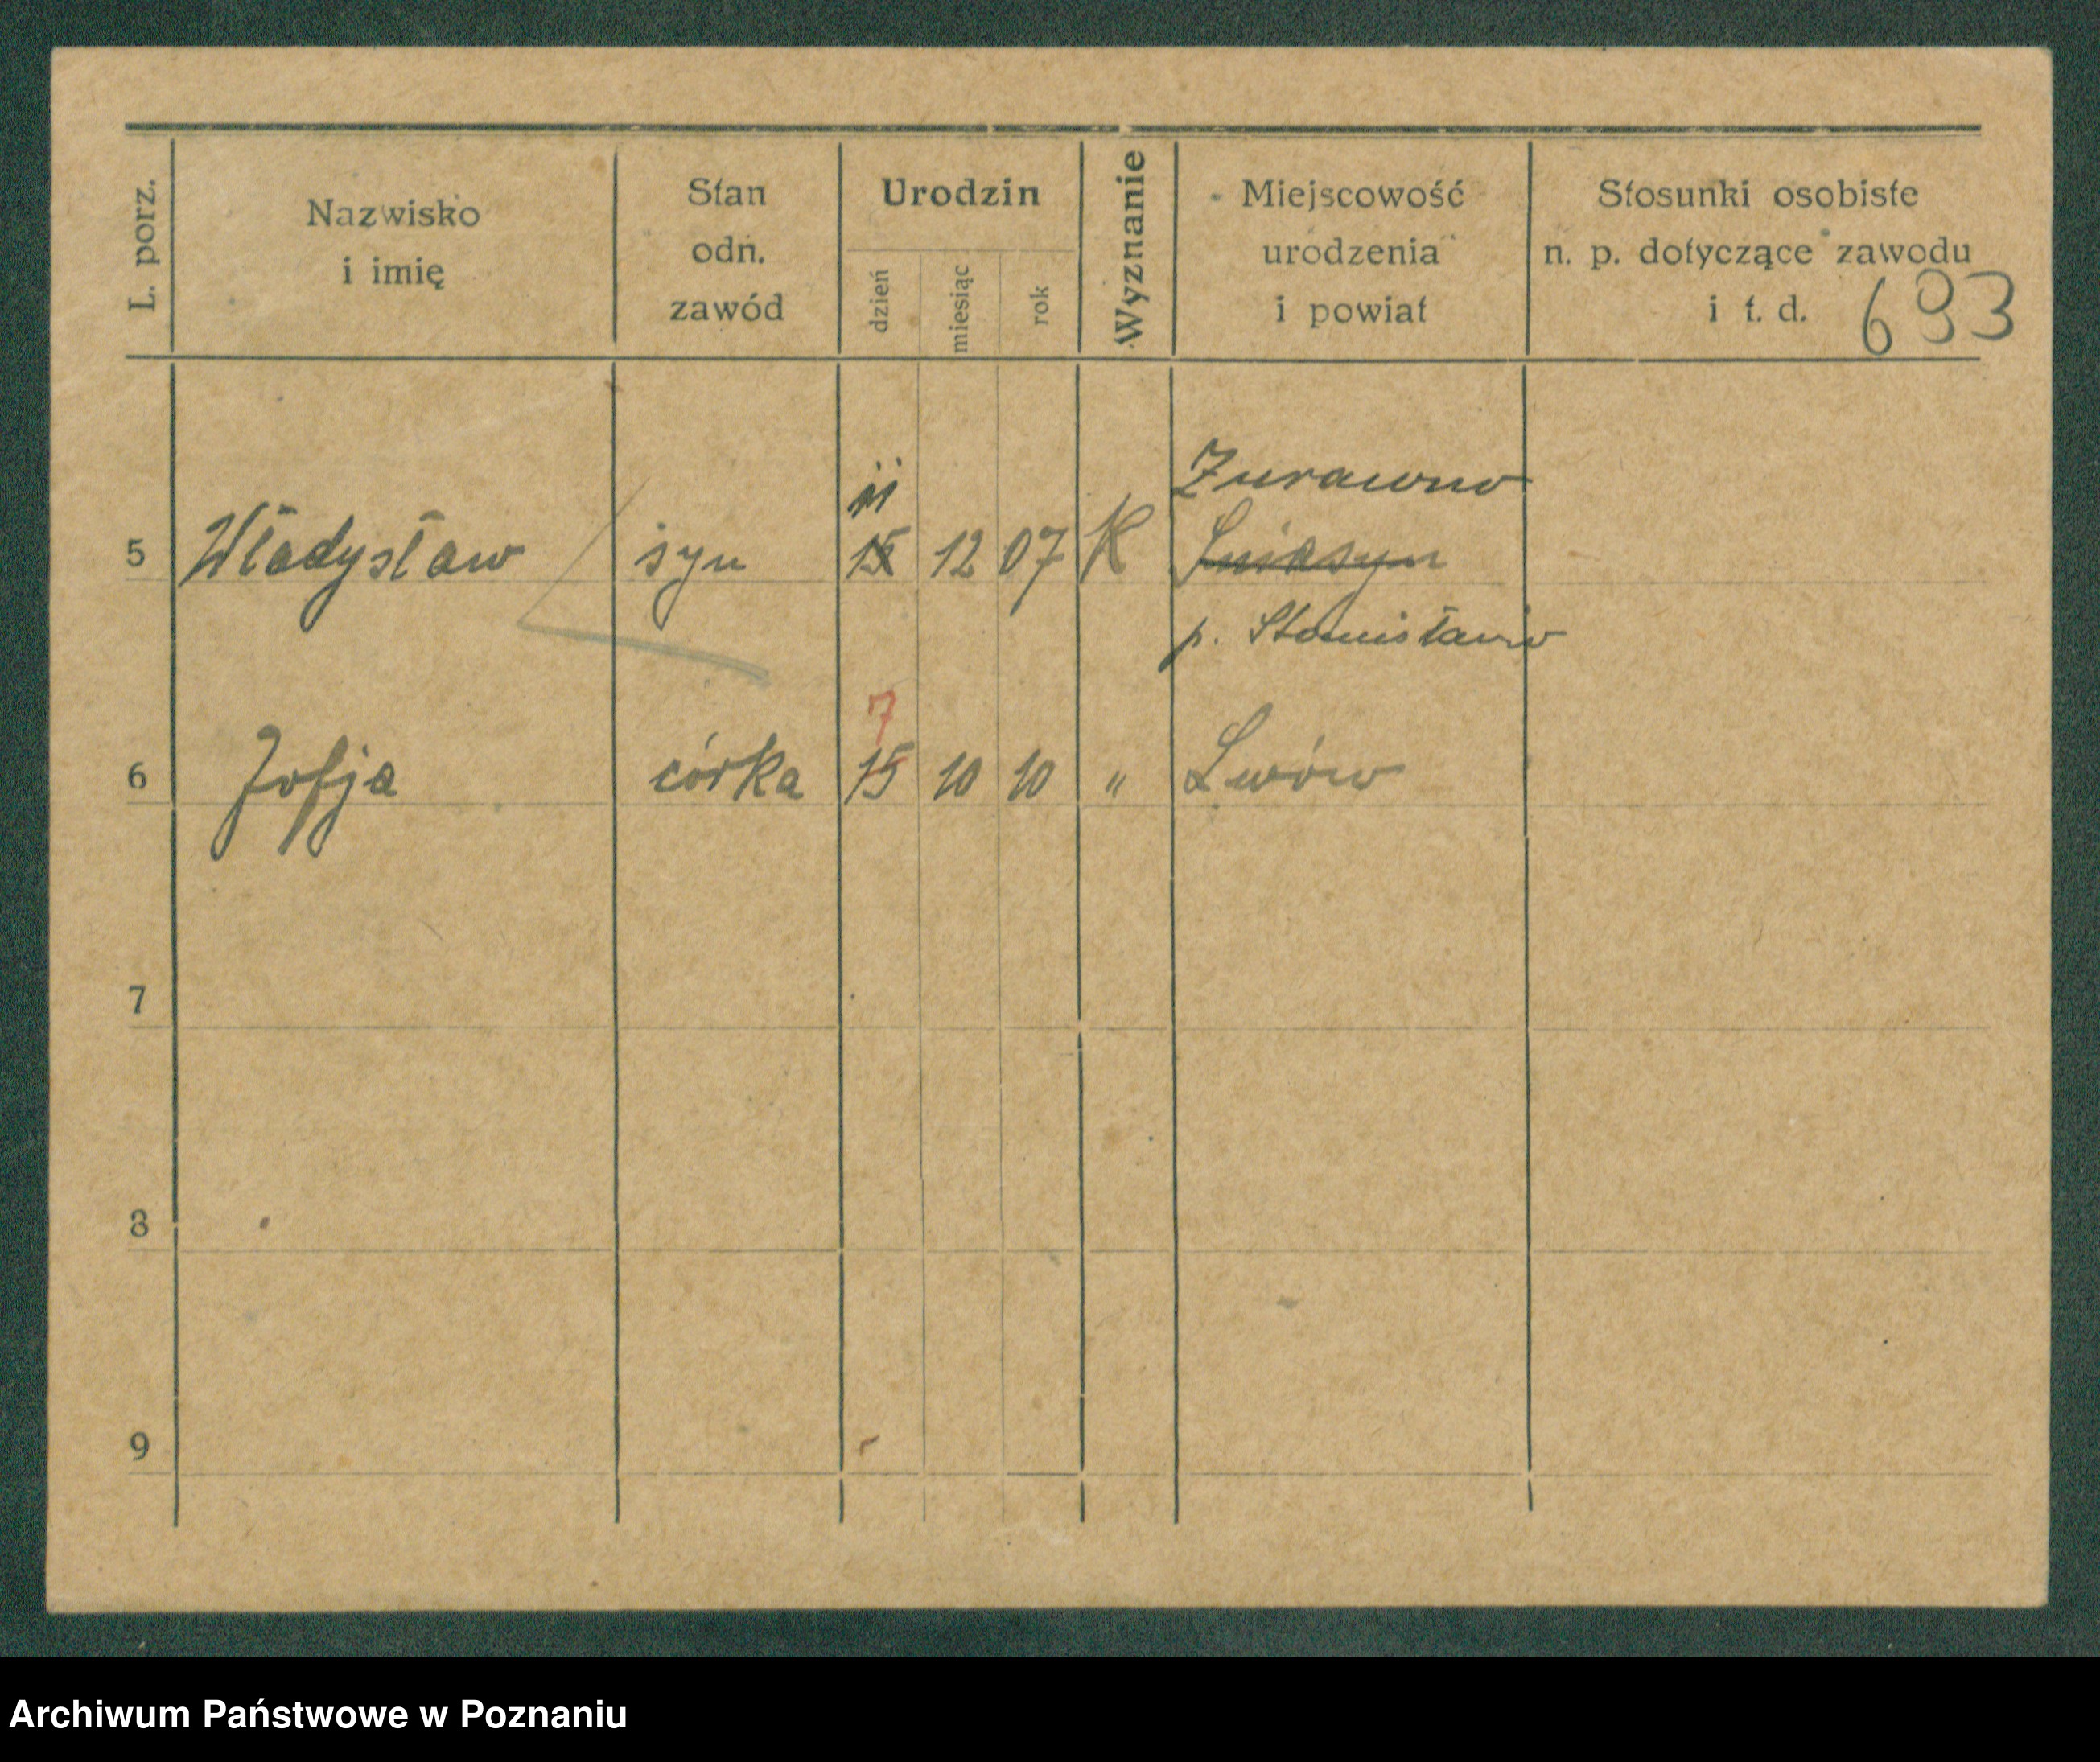 L. porz.
Nazwisko
i imię
Stan
odn.
zawód
Urodzin
dzień
miesiąc
rok
Wyznanie
Miejscowość
urodzenia
i powiat
Stosunki osobiste
n. p. dotyczące zawodu
i t. d.
693
Zurawno
11
5 Władysław syn 15 12 07 K
p. Stanisławów
7
6 Zofja córka 15 10 10 " Lwów
7
8
9
Archiwum Państwowe w Poznaniu